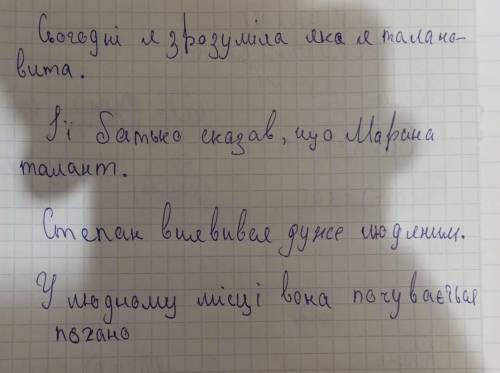 Сьогодні я зрозуміла яка я талано-
вита.
Її батько сказав, що Марина
талант.
Степан виявився дуже людяним.
У людному місці вона почувається
погано